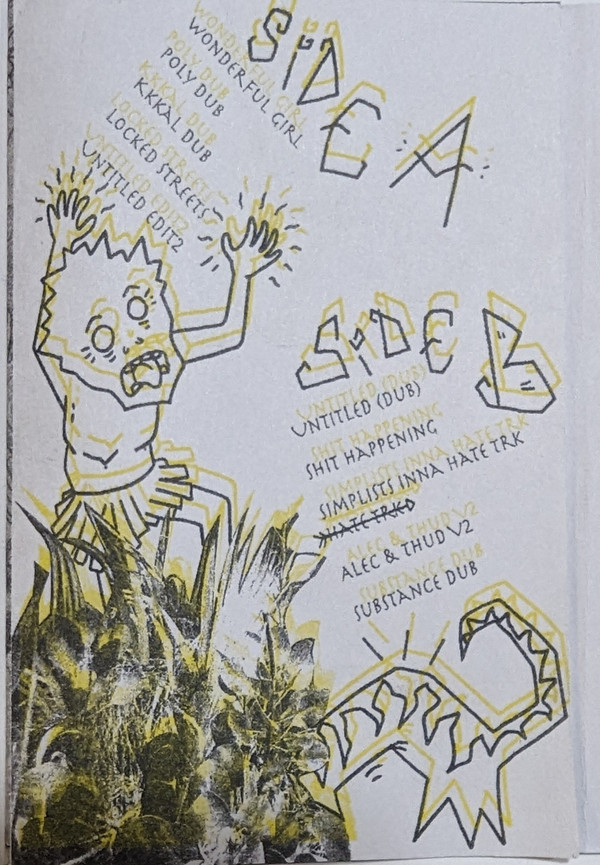 SiDE A
WONDERFUL GIRL
POLY DUB
KKKAL DUB
LOCKED STREETS
UNTITLED EDIT2
SiDE B
UNTITLED (DUB)
SHIT HAPPENING
SIMPLISTS INNA HATE TRK
HATE TRKD
ALEC & THUD V2
SUBSTANCE DUB